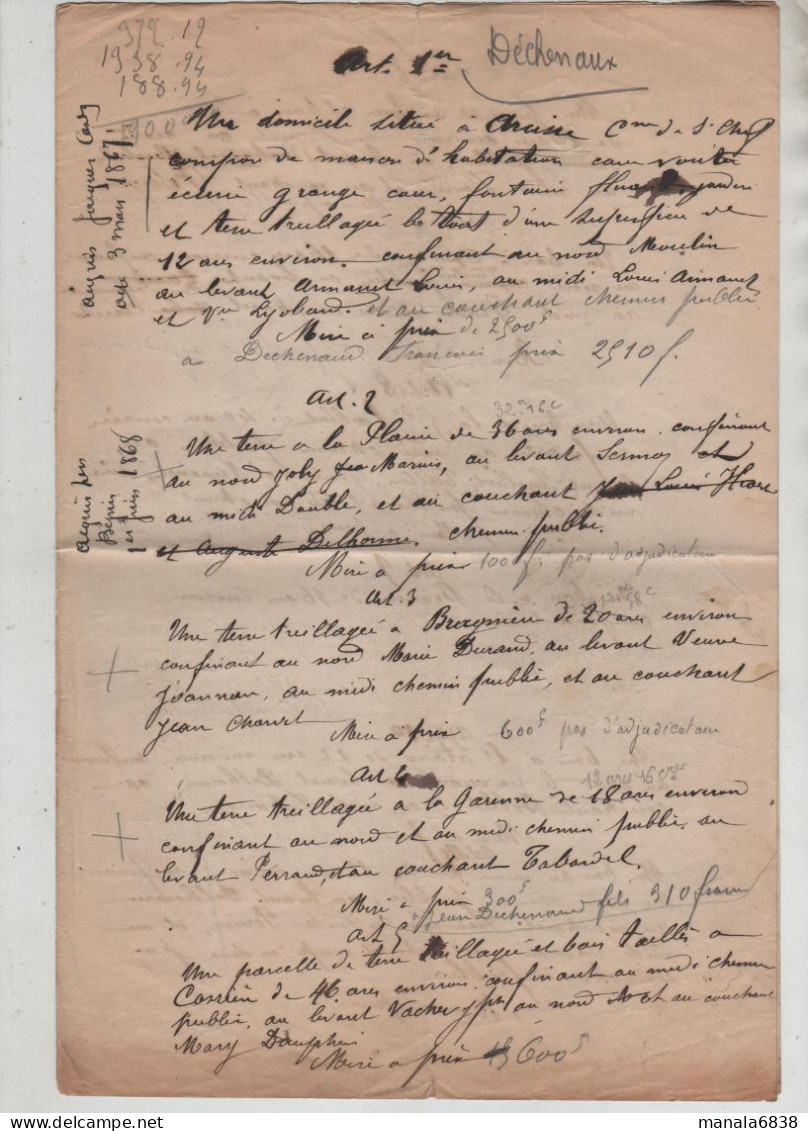 379.12
1938.94
188.94
Art. 1er
Déchenaux
Un domicile situé à Arcisse Cne de St Chef
composé de maison d'habitation cave voutée
écurie grange cour, fontaine jardin
et terre treillagée le tout d'une superficie de
12 ares environ. confinant au nord Moulin
au levant Armanet Louis, au midi Louis Armanet
et Vve Lyobard. et au couchant chemin public
Mise à prix de 2500f
à Dechenaud François prix 2510f.
acte 3 mars 1867
Art. 2
Une terre a la Plaine de 36 ares environ confinant
au nord Joly Marius, au levant Sermos et
au midi Double, et au couchant Jean Louis
et Auguste Delhomme. chemin public.
Mise a prix 100f pas d'adjudicataire
acquis
1er juin 1868
Art. 3
Une terre treillagée a de 20 ares environ
confinant au nord Marie Durand, au levant Veuve
Jeannan, au midi chemin public, et au couchant
Jean Charvet
Mise a prix 600f pas d'adjudicataire
Art 4
12 ares 16
Une terre treillagée a la Garenne de 18 ares environ
confinant au nord et au midi chemin public, au
levant Perraud, et au couchant Tabardel.
Mise a prix 300f
Jean Dechenaud fils 310 francs
Art 5
Une parcelle de terre treillagée et bois taillés a
de 46 ares environ, confinant au midi chemin
public, au levant Vacher au nord et au couchant
Mary Dauphin
Mise a prix 600f
manala6838